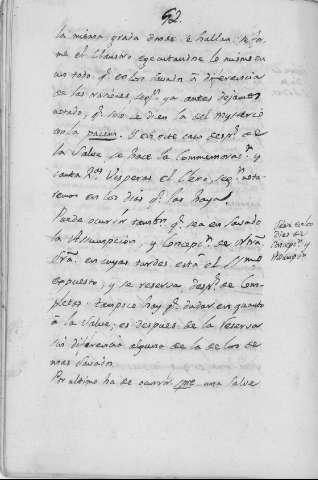 52.
la misma grada donde se hallan se for
me el Claustro executandose lo mismo en
un todo qe. en los Savados â diferencia
de las varieas, segn. ya antes dejamos
notado, qe. solo se dicen la del mysterio
en la Y en este caso despues de
la Salve se hace la Commemoran. y
canta Ros. Visperas el Clero, segn. nota-
remos en los dias qe. las haya.
Puede ocurrir tambn. qe. sea en Savado
la Assumpcion, y Concepn. de Ntra.
Sra. en cuyas tardes está el Ssmo.
expuesto; y se reserva despues de Com-
pletas; tampoco hay qe. dudar en quanto
â la Salve; es despues de la reserva
sin diferencia alguna de la de los de
mas Savados.
Por ultimo ha de ocurrir una Salve
en los
dias de
Concepn. y
Assumpn.